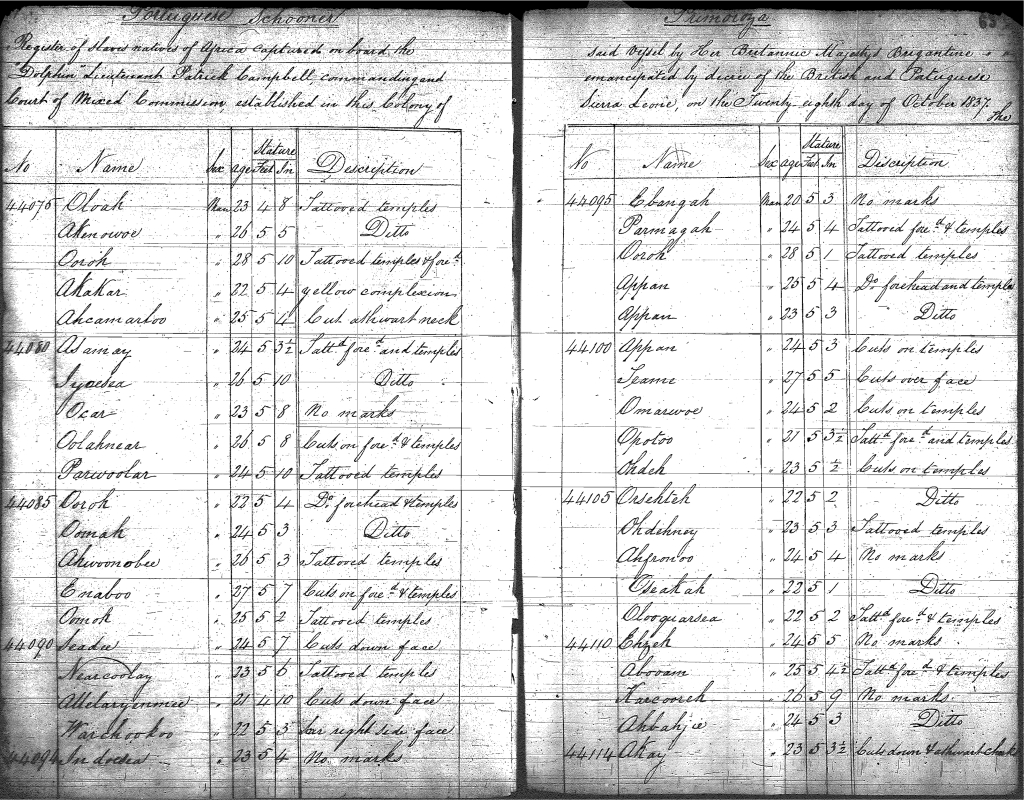 Portuguese Schooner
Register of Slaves natives of Africa captured on board the
"Dolphin" Lieutenant Patrick Campbell commanding and
Court of Mixed Commission, established in this Colony of
No Name Sex age Stature Feet In Description
44075 Oloah Man 23 4 8 Tattooed temples
Akenowoe " 26 5 5 Ditto
Oorok " 28 5 10 Tattooed temples & fore.d
Akakar " 22 5 4 yellow complexion
Ahcamartoo " 25 5 4 Cut athwart neck
44080 Asamay " 24 5 3½ Tatt.d fore.d and temples
" 26 5 10 Ditto
Ocar " 23 5 8 No marks
Oolahnear " 26 5 8 Cuts on fore.d & temples
Parwoolar " 24 5 10 Tattooed temples
44085 Oorok " 22 5 4 Do. forehead & temples
Oomah " 24 5 3 Ditto
Ahwoonobee " 26 5 3 Tattooed temples
Enaboo " 27 5 7 Cuts on fore.d & temples
Oomok " 25 5 2 Tattooed temples
44090 Seadee " 24 5 7 Cuts down face
Nearcoolay " 23 5 6 Tattooed temples
Allelaryenmee " 21 4 10 Cuts down face
Warehookoo " 22 5 3 Scar right side face
44094 Indoesea " 23 5 4 No marks
Primoroza
said Vessel by Her Britannic Majestys Brigantine " "
emancipated by decree of the British and Portuguese
Sierra Leone, on the Twenty eighth day of October 1837. The
No Name Sex age Stature Feet In Description
44095 Ebangah Man 20 5 3 No marks
Parmagah " 24 5 4 Tattooed fore.d & temples
Oorok " 28 5 1 Tattooed temples
Appan " 25 5 4 Do. forehead and temples
Appan " 23 5 3 Ditto
44100 Appan " 24 5 3 Cuts on temples
Teame " 27 5 5 Cuts over face
Omarwoe " 24 5 2 Cuts on temples
Opotoo " 21 5 3½ Tatt.d fore.d and temples
Ohdeh " 23 5 ½ Cuts on temples
44105 Orsehteh " 22 5 2 Ditto
Ohdehney " 23 5 3 Tattooed temples
Ahfronoo " 24 5 4 No marks
Tseakah " 22 5 1 Ditto
Olooquarsea " 22 5 2 Tatt.d fore.d & temples
44110 " 24 5 5 No marks
Abooam " 25 5 4½ Tatt.d fore.d & temples
Karconeh " 26 5 9 No marks
Ahbahjie " 24 5 3 Ditto
44114 Akay " 23 5 3½ Cuts down & athwart cheeks